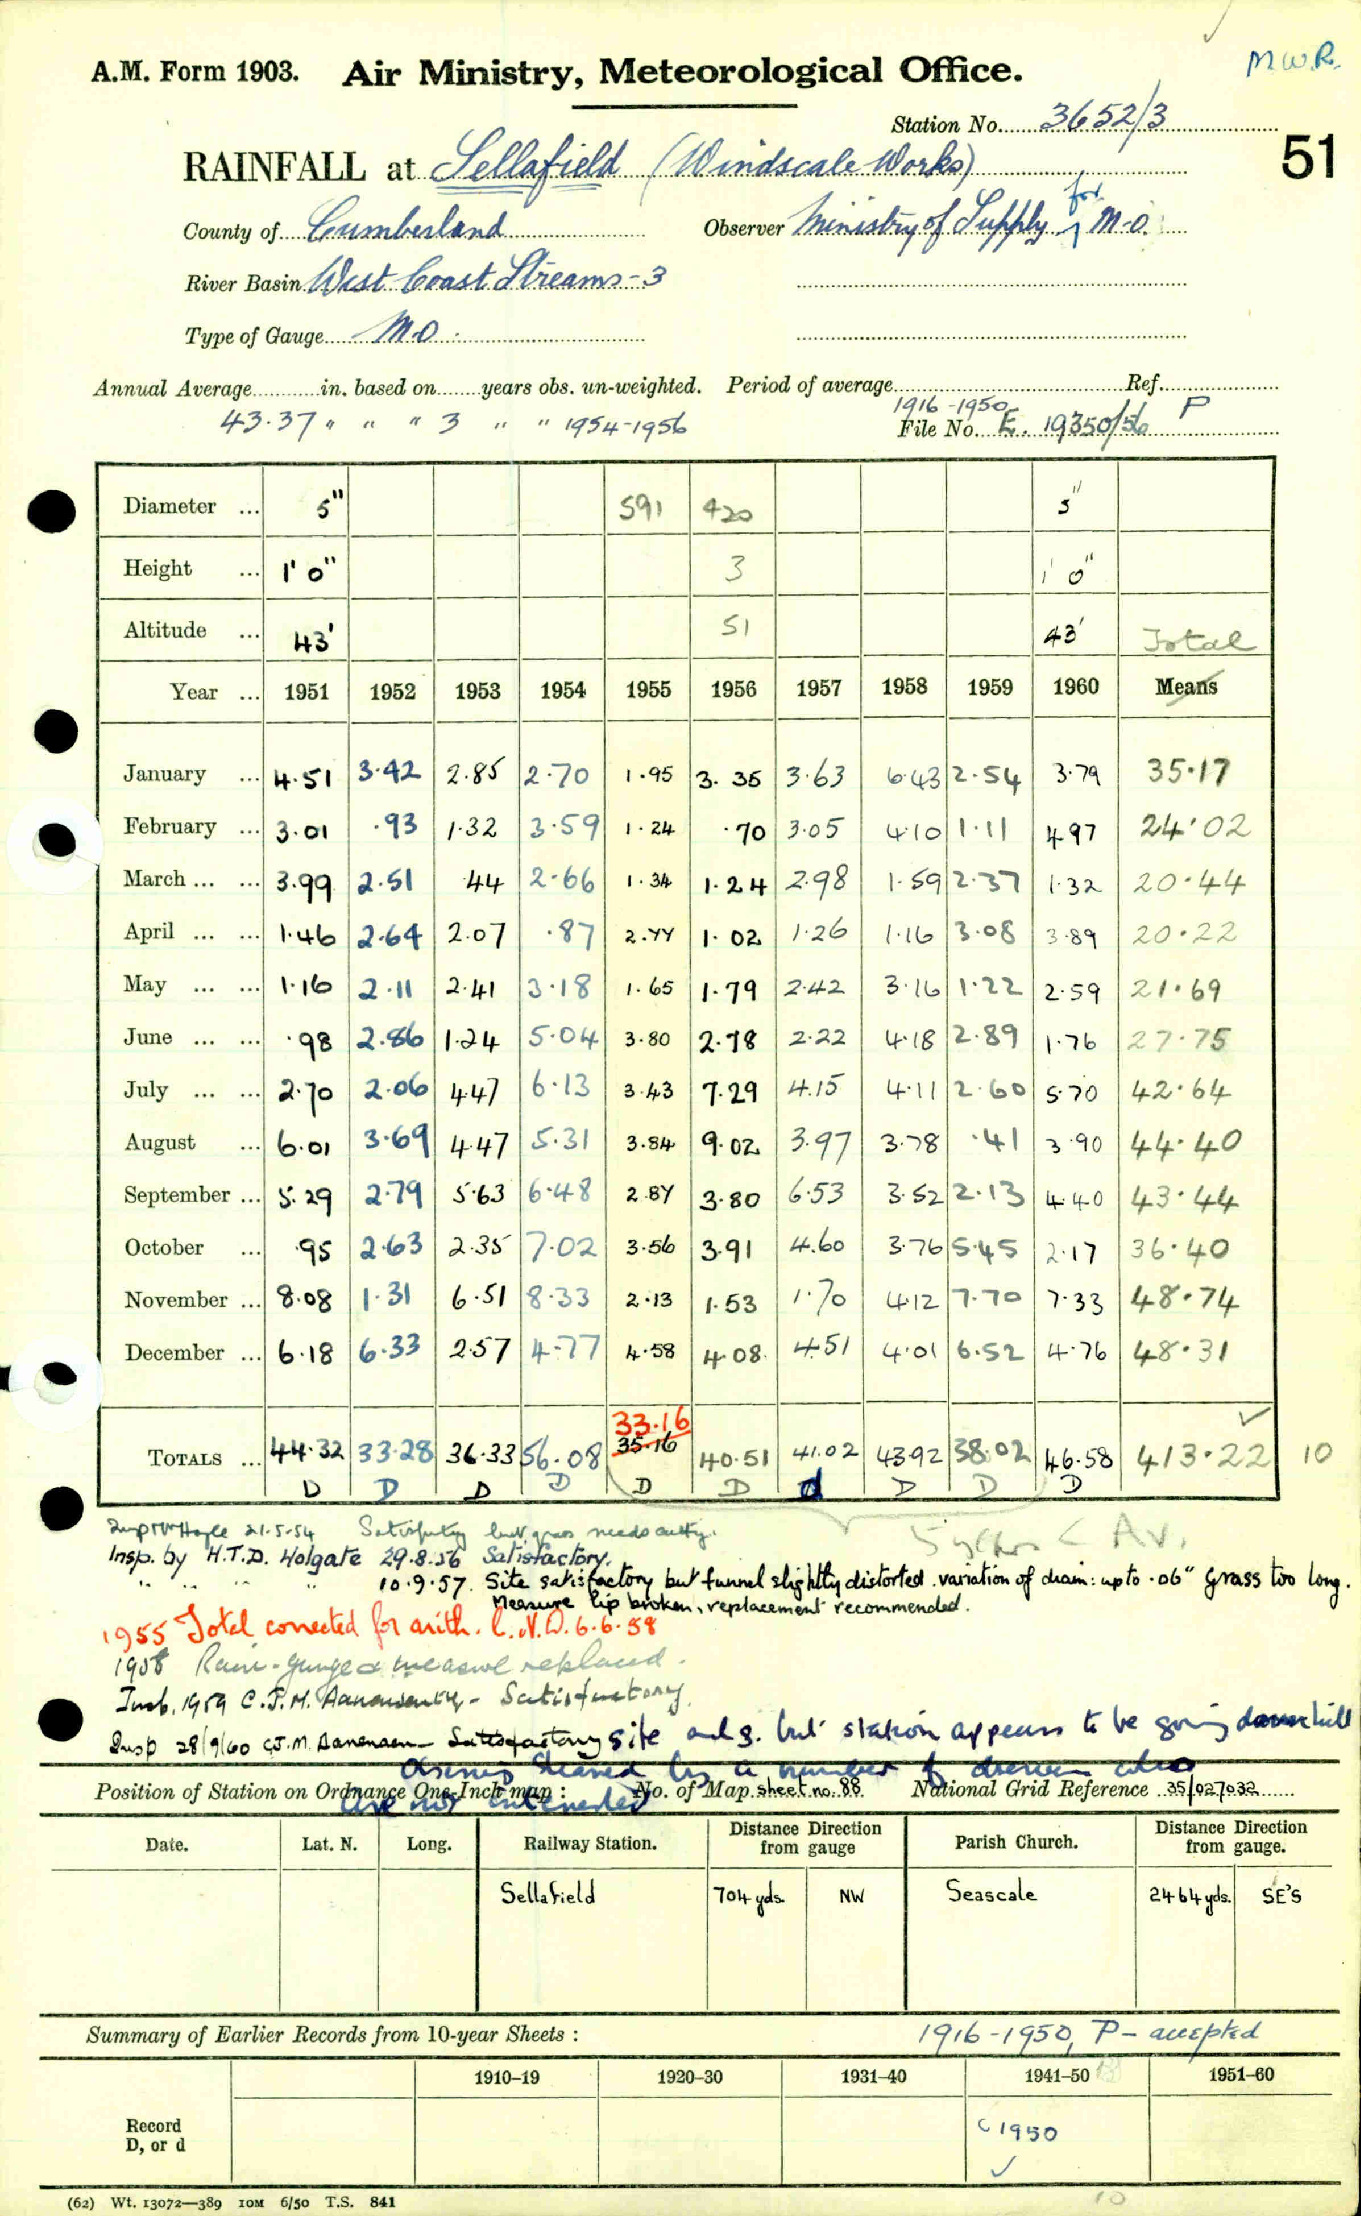 M.W.R.
A.M. Form 1903. Air Ministry, Meteorological Office.
Station No. 3652/3
51
RAINFALL at Sellafield (Windscale Works)
County of Cumberland Observer Ministry of Supply for M.O.
River Basin West Coast Streams-3
Type of Gauge M.O.
Annual Average in. based on years obs. un-weighted. Period of average Ref.
43.37 " " " 3 " " 1954-1956 1916-1950 P
File No. E. 19350/56
Diameter ... 5" 591 420 5"
Height ... 1' 0" 3 1' 0"
Altitude ... 43' 51 43' Total
Year ... 1951 1952 1953 1954 1955 1956 1957 1958 1959 1960 Means
January ... 4.51 3.42 2.85 2.70 1.95 3.35 3.63 6.43 2.54 3.79 35.17
February ... 3.01 .93 1.32 3.59 1.24 .70 3.05 4.10 1.11 4.97 24.02
March ... ... 3.99 2.51 .44 2.66 1.34 1.24 2.98 1.59 2.37 1.32 20.44
April ... ... 1.46 2.64 2.07 .87 2.77 1.02 1.26 1.16 3.08 3.89 20.22
May ... ... 1.16 2.11 2.41 3.18 1.65 1.79 2.42 3.16 1.22 2.59 21.69
June ... ... .98 2.86 1.24 5.04 3.80 2.78 2.22 4.18 2.89 1.76 27.75
July ... ... 2.70 2.06 4.47 6.13 3.43 7.29 4.15 4.11 2.60 5.70 42.64
August ... 6.01 3.69 4.47 5.31 3.84 9.02 3.97 3.78 .41 3.90 44.40
September ... 5.29 2.79 5.63 6.48 2.87 3.80 6.53 3.52 2.13 4.40 43.44
October ... .95 2.63 2.35 7.02 3.56 3.91 4.60 3.76 5.45 2.17 36.40
November ... 8.08 1.31 6.51 8.33 2.13 1.53 1.70 4.12 7.70 7.33 48.74
December ... 6.18 6.33 2.57 4.77 4.58 4.08 4.51 4.01 6.52 4.76 48.31
33.16
TOTALS ... 44.32 33.28 36.33 56.08 35.16 40.51 41.02 43.92 38.02 46.58 413.22 10
D D D D D D d D D D
21.5.54 Satisfactory but grass needs cutting.
< Av.
Insp. by H.T.D. Holgate 29.8.56 Satisfactory.
" " " " 10.9.57. Site satisfactory but funnel slightly distorted. variation of diam: up to .06" Grass too long.
Measure lip broken, replacement recommended.
1955 Total corrected for arith. C.N.D. 6.6.58
1958 Rain-gauge & measure replaced.
Insp. 1959 C.J.M. Aanensen - Satisfactory
Insp 28/9/60 C.J.M. Aanensen - Satisfactory site and g. but station appears to be going downhill
by a number of
are not interested
Position of Station on Ordnance One-Inch map : No. of Map sheet no. 88 National Grid Reference 35/027032
Date. Lat. N. Long. Railway Station. Distance Direction from gauge Parish Church. Distance Direction from gauge.
Sellafield 704 yds. NW Seascale 2464 yds. SE'S
Summary of Earlier Records from 10-year Sheets : 1916-1950, P - accepted
1910–19 1920–30 1931–40 1941–50 1951–60
Record
D, or d
c 1950
(62) Wt. 13072—389 10M 6/50 T.S. 841
10